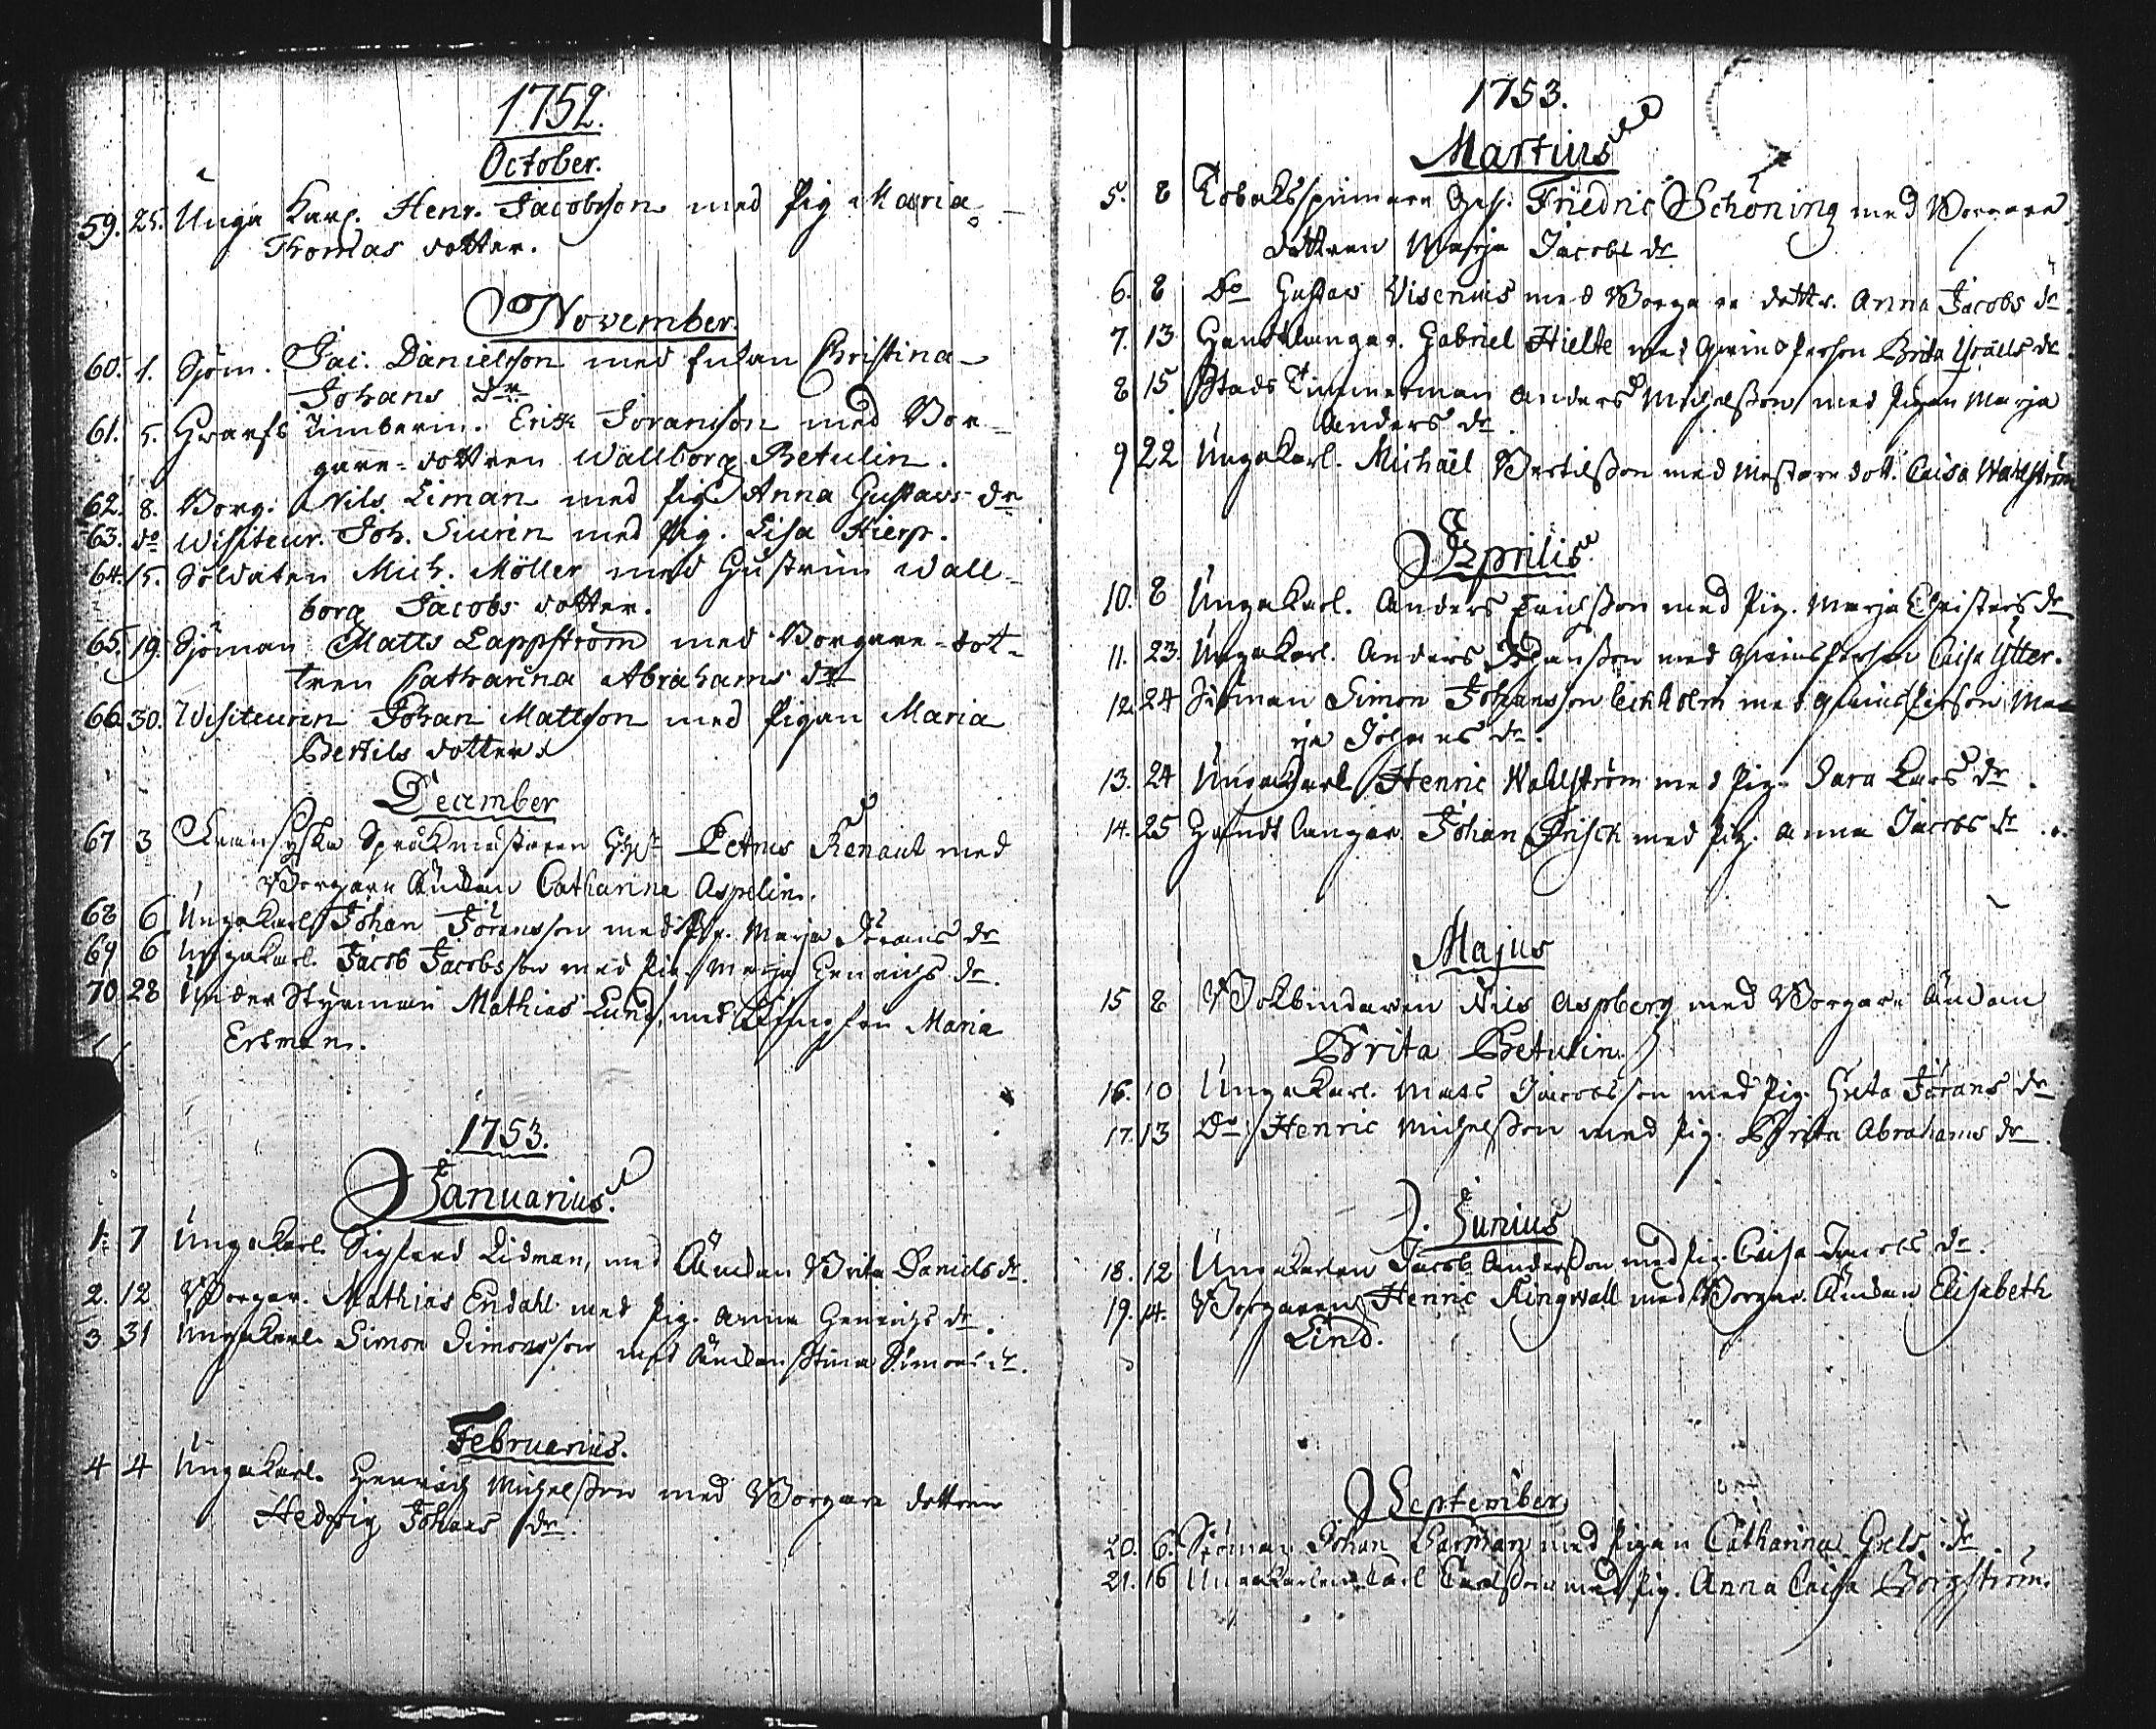 1752.
October.
59. 25. Unga Karl. Henr. Jacobsson med Pig Maria
Thomas dotter.
November.
60. 1. Sjöm. Jac. Danielsson med Enkan Christina
Johans dr.
61. 5. Hwarfs Timberm. Erik Joransson med Bor-
gare-dottren Wallborg Betulin.
62. 8. Borg. Nils Liman med Pig Anna Gustavs dr
63. do Visiteur. Joh. Siurin med Pig. Lisa Hierp.
64. 15. Soldaten Mich. Möller med Hustrun Wall-
borg Jacobs dotter.
65. 19. Sjöman Matts Lappström med Borgare-dot-
tren Catharina Abrahams dr
66. 30. Visiteuren Johan Mattsson med Pigan Maria
Bertils dotter
December
67 3 Fransyska Språkmästaren Petrus Renaut med
Borgare Änkan Catharina Aspelin.
68 6 Ungakarl Johan Joransson med Pig. Marja Jörans dr
69 6 Ungakarl. Jacob Jacobsson med Pig. Marja Henrichs dr.
70 28 Under Styrman Mathias Lund, med Maria
Ertman.
1753.
Januarius.
1. 7 Ungakarl. Sigfard Lidman, med Änckan Brita Daniels dr.
2. 12 Borgar. Mathias Endahl med Pig. Anna Henrichs dr.
3 31 Ungakarl. Simon Simonsson med Änckan Stina Simons dr.
Februarius.
4 4 Ungakarl. Henrich Michelsson med Borgare dottren
Hedwig Johans dr.
1753.
Martius
5. 8 Tobaksspinnare Ges. Friedric Schöning med Borgare
dottren Marja Jacobs dr
6. 8 Do Gustav Visenius med Borgare dottr. Anna Jacobs dr
7. 13 Handtlangar. Gabriel Hielte med Qwins Person Brita Israels dr
8 15 Stads Timmerman Anders Michelsson med Pigan Marja
Anders dr.
9 22 Ungakarl. Michäel Bertilsson med Mästare dott. Caisa Wahlström
Aprilis
10. 8 Ungakarl. Anders Ericsson med Pig. Marja Christers dr
11. 23. Ungakarl. Anders Johansson med Qwinsperson Caisa Ytter.
12. 24 Siöman Simon Johansson Ekholm med Qwins Person Mar
ja Johans dr.
13. 24 Ungakarl Henric Wahlström med Pig. Sara Lars dr.
14. 25 Handtlangar. Johan Frisck med Pig. Anna Jacobs dr.
Majus
15 8 Bokbindaren Nils Aspberg med Borgare Änckan
Brita Betulin.
16. 10 Ungakarl. Mats Jacobsson med Pig. Greta Jörans dr
17. 13 Do Henric Michelsson med Pig. Brita Abrahams dr.
Junius
18. 12 Ungakarlen Jacob Andersson med Pig. Caisa Jacobs dr.
19. 14. Borgaren Henric Ringwall med Borgar. Änckan Elisabeth
Lind.
September
20. 6. Siöman Johan Barman med Pigan Catharina Grels dr
21. 16 Ungakarlen Carl Carlsson med Pig. Anna Caisa Borgström.